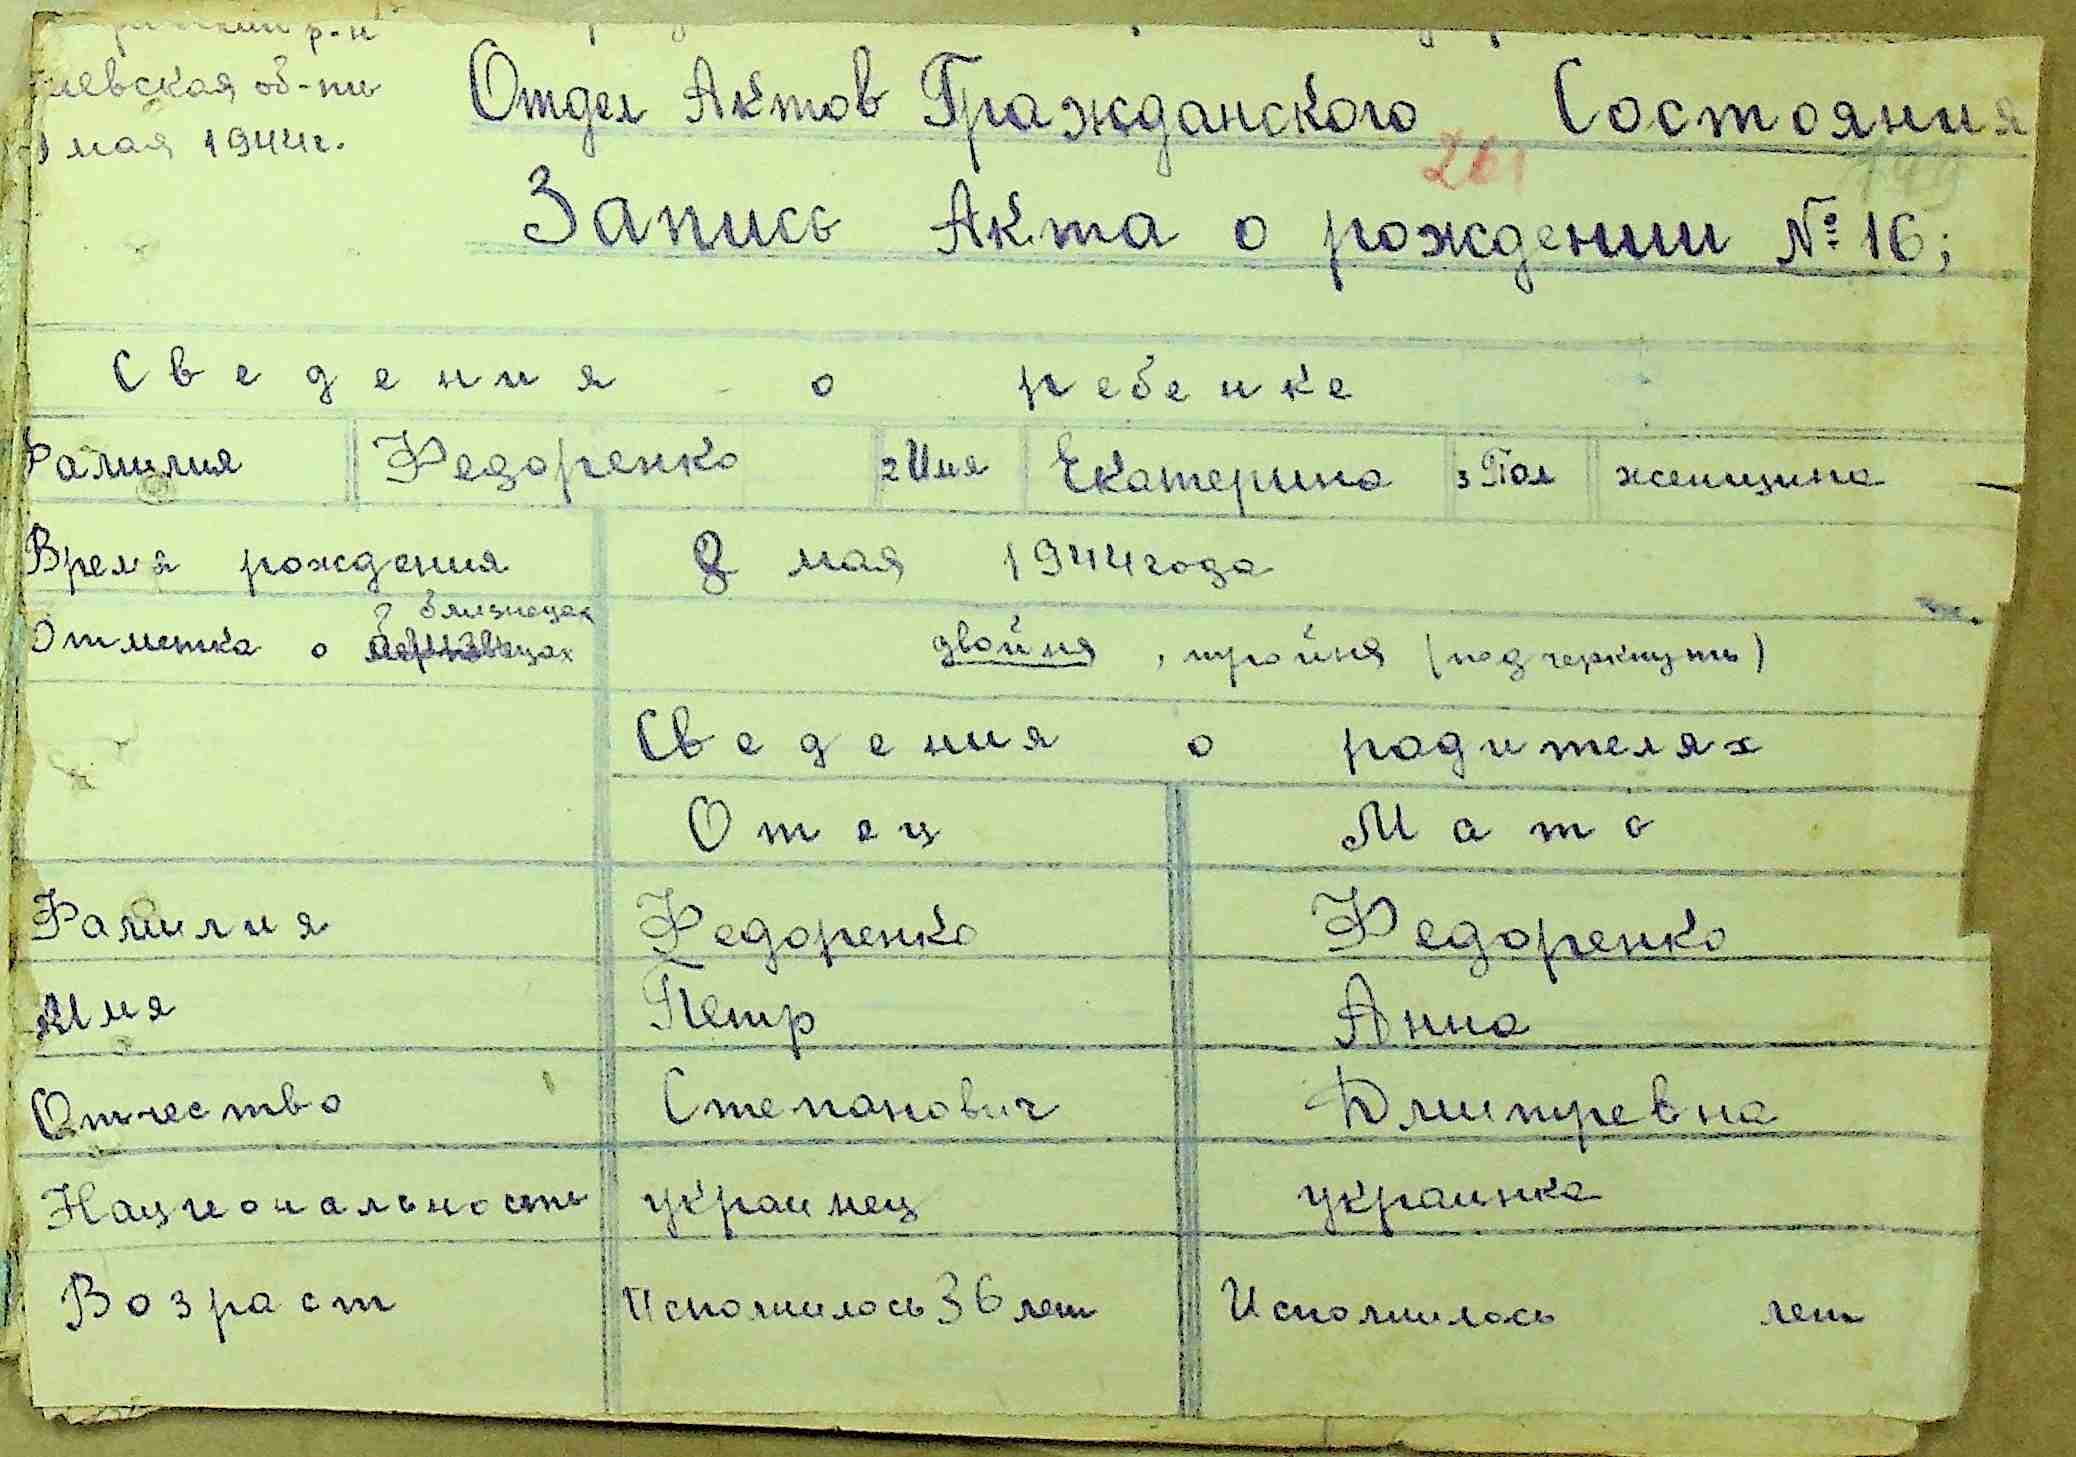 р-н
Киевская об-ть
мая 1944г.
Отдел Актов Гражданского Состояния
261
199
Запись Акта о рождении № 16;
Сведения о ребенке
Фамилия Федоренко 2 Имя Екатерина 3 Пол женщина
Время рождения 8 мая 1944 года
близнецах
Отметка о двойня, тройня (подчеркнуть)
Сведения о родителях
Отец Мать
Фамилия Федоренко Федоренко
Имя Петр Анна
Отчество Степанович Дмитревна
Национальность украинец украинка
Возраст Исполнилось 36 лет Исполнилось лет